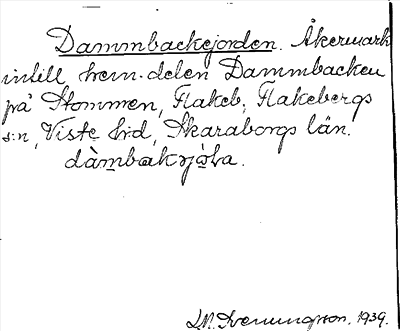 Dammbackejorden. Åkermark
intill hem.delen Dammbacken
på Stommen, Flakeb., Flakebergs
s:n, Viste h:d, Skaraborgs län.
1939.